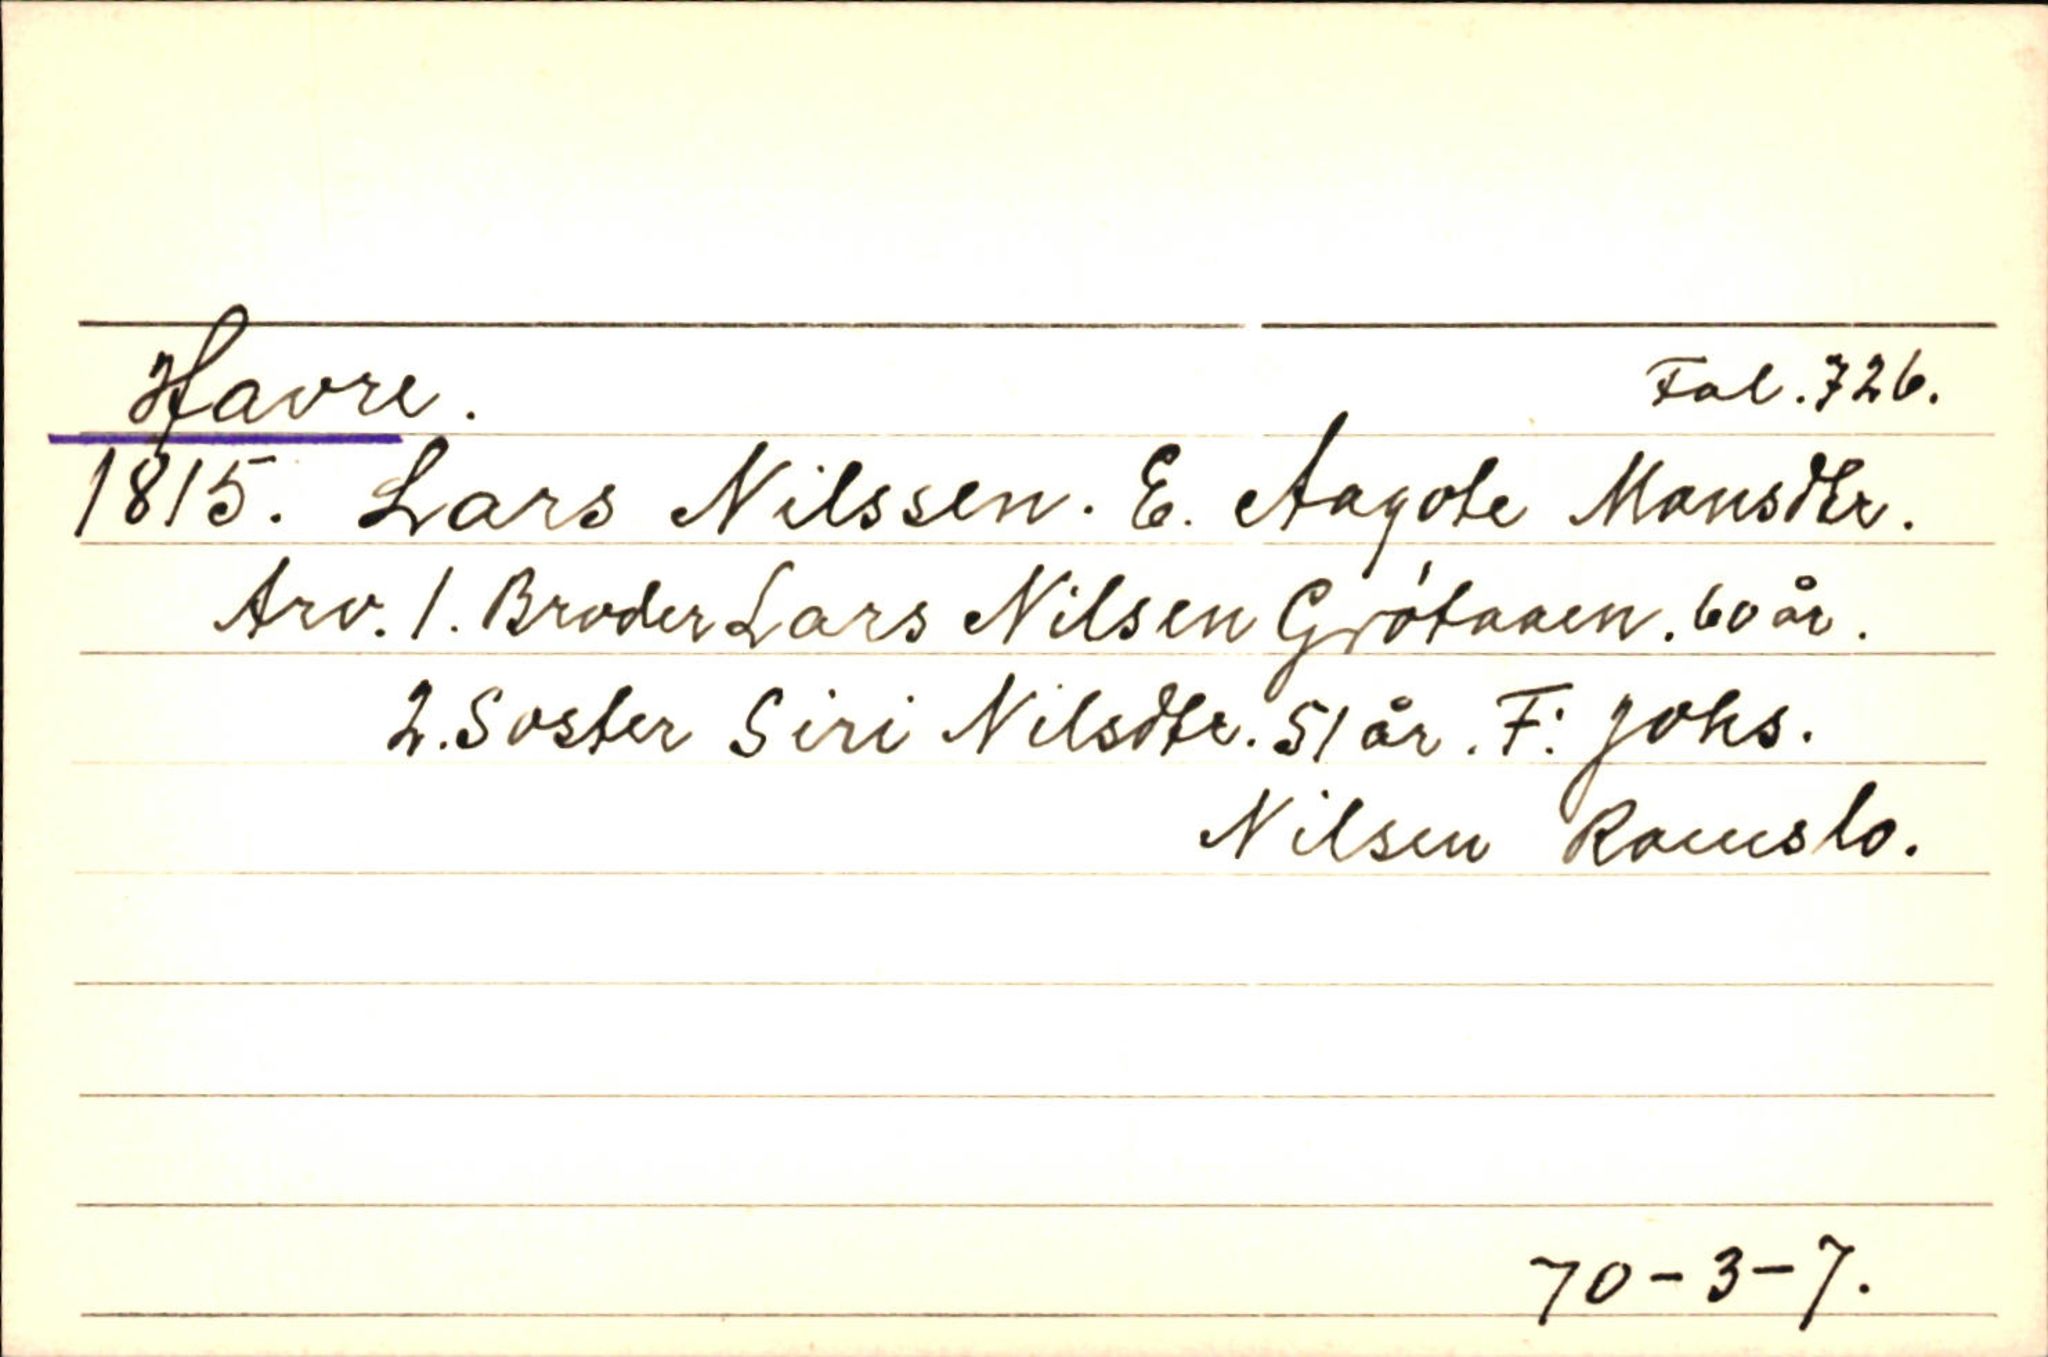 Havre. Fol. 726.
1815. Lars Nilssen. E. Aagote Monsdtr.
Arv. 1. Broder Lars Nilsen Gjótaaen. 60 år.
2. Soster Siri Nilsdtr. 51 år. F: Johs.
Nilsen Romslo.
70-3-7.